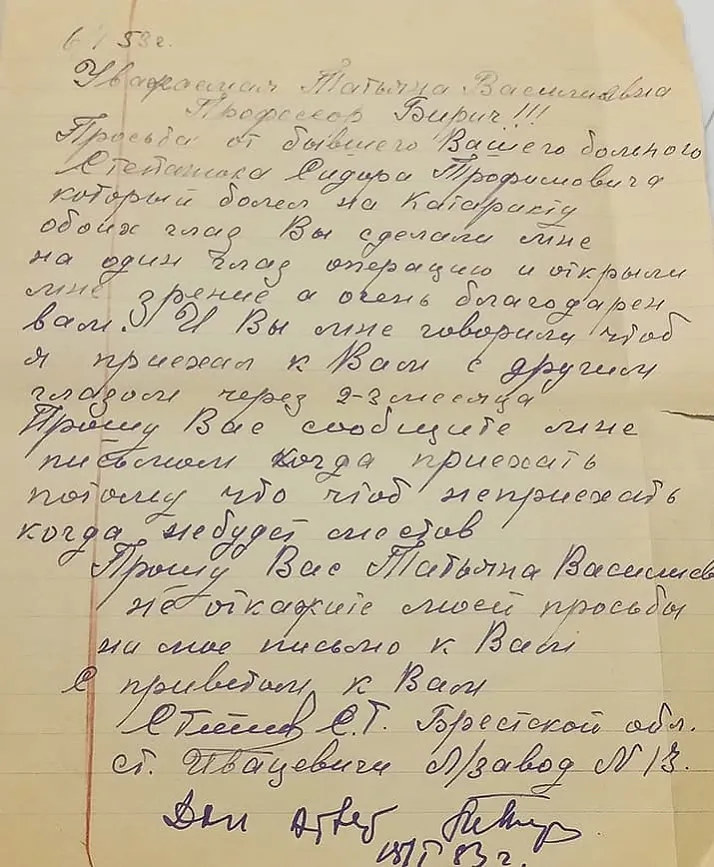 6/I 53 г.
Уважаемая Татьяна Василиевна
Професор Бирич!!!
Просьба от бывшего Вашего больного
Сидора Трофимовича
который болел на Катаракту
обоих глаз Вы сделали мне
на один глаз операцию и открыли
мне зрение а очень благодарен
вам. И Вы мне говорили чтоб
я приехал к Вам с другим
глазом через 2-3 месяца
Прошу Вас сообщите мне
письмом когда приехать
потому что чтоб неприехать
когда небудет местов
Прошу Вас Татьяна Василиев
не откажите моей просьбы
на мое письмо к Вам
С приветом к Вам
С.Т. Брестской обл.
ст. Ивацевичи Л/завод N 13.
Дан ответ